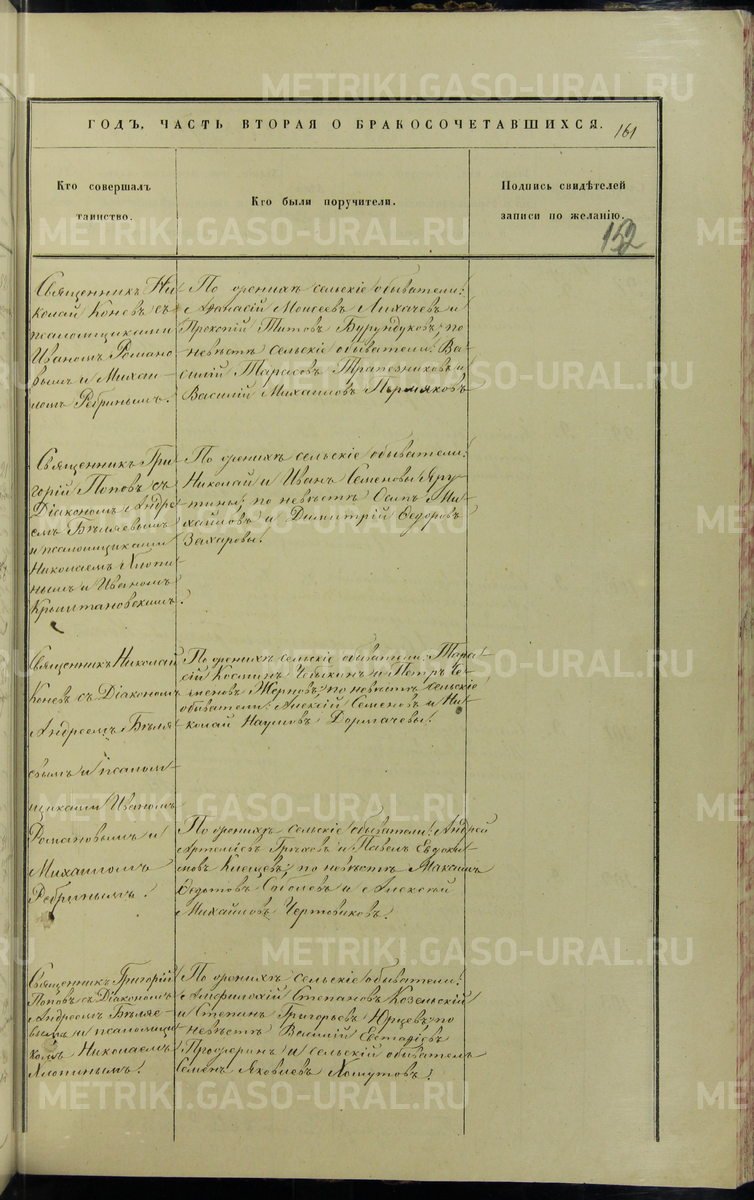 ГОДЪ, ЧАСТЬ ВТОРАЯ О БРАКОСОЧЕТАВШИХСЯ.
161
Кто совершалъ
таинство.
Кто были поручители.
Подпись свидѣтелей
записи по желанію.
152
Священникъ Ни-
колай Коневъ съ
псаломщиками
Иваномъ Романо-
вымъ и Михаи-
ломъ Ребринымъ.
По женихѣ сельскіе обыватели:
Афанасій Моисеевъ Лихачевъ и
Прокопій Титовъ Бурундуковъ; по
невѣстѣ сельскіе обыватели: Ва-
силій Тарасовъ Трапезниковъ и
Василій Михаиловъ Пермяковъ
Священникъ Гри-
горій Поповъ съ
Діакономъ Андре-
емъ Бѣляевымъ
и псаломщиками
Николаемъ Хлопи-
нымъ и Иваномъ
Крыштановскимъ.
По женихѣ сельскіе обыватели:
Николай и Иванъ Семеновы Яру-
тины; по невѣстѣ Осипъ Ми-
хайловъ и Димитрій Ѳедоровъ
Захаровы.
Священникъ Николай
Коневъ съ Діакономъ
Андреемъ Бѣляе-
вымъ и псалом-
щиками Иваномъ
Романовымъ и
Михаиломъ
Ребринымъ.
По женихѣ сельскіе обыватели:
Косминъ и Петръ Се-
меновъ Жерновъ; по невѣстѣ сельскіе
обыватели: Алексій Семеновъ и Ни-
колай Наумовъ Дормачевы.
По женихѣ сельскіе обыватели: Андрей
Артеміевъ Грѣховъ и Павелъ Евдоки-
мовъ Клещевъ; по невѣстѣ Максимъ
Ѳедотовъ Соболевъ и Алексѣй
Михайловъ Чертовиковъ.
Священникъ Григорій
Поповъ съ Діакономъ
Андреемъ Бѣляе-
вымъ и псаломщи-
комъ Николаемъ
Хлопинымъ.
По женихѣ сельскіе обыватели:
Амфилохій Степановъ Коземскій
и Степанъ Григорьевъ Юрцевъ; по
невѣстѣ Василій
и сельскій обыватель
Семенъ Яковлевъ Хомутовъ.
METRIKI.GASO-URAL.RU